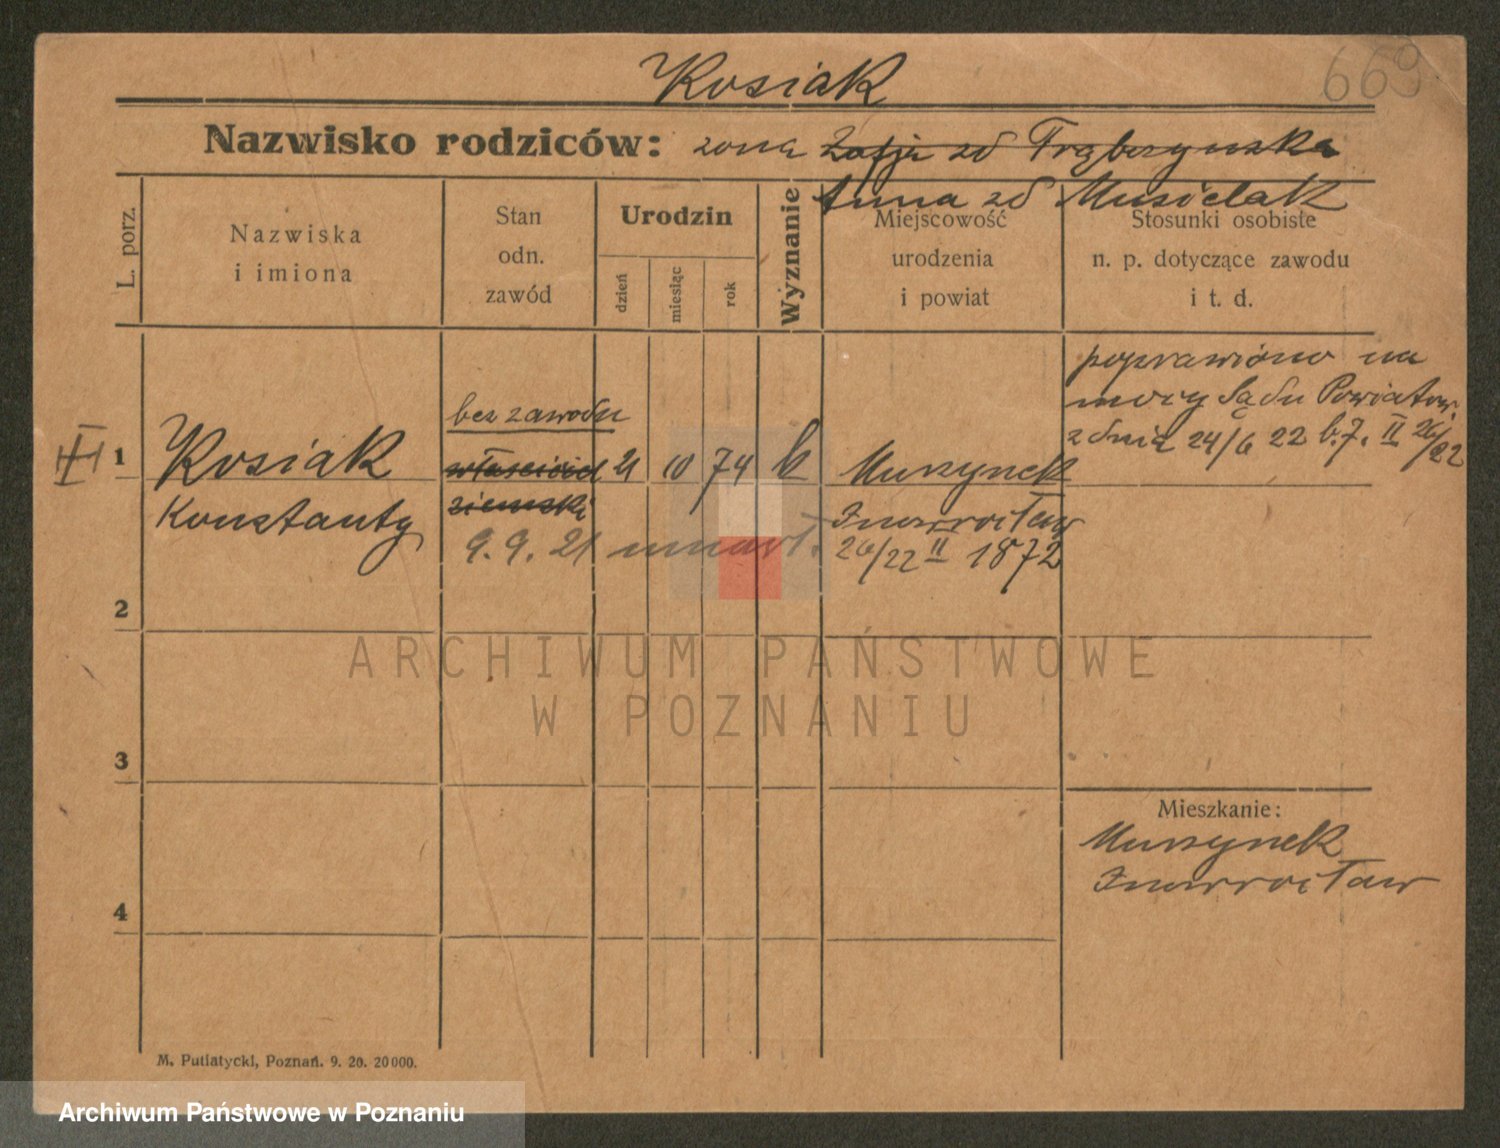 Kosiak
669
Nazwisko rodziców: żona Zofja zd Trąbczynska
Anna zd Musielak
L. porz.
Nazwiska
i imiona
Stan
odn.
zawód
Urodzin
dzień
miesiąc
rok
Wyznanie
Miejscowość
urodzenia
i powiat
Stosunki osobiste
n. p. dotyczące zawodu
i t. d.
poprawiono na
mocy Sądu Powiatow.
z dnia 24/6 22 b.7. II 26/22
bez zawodu
1 Kosiak właściciel 21 10 74 k Murzynek
Konstanty ziemski Inowrocław
9. 9. 21 umarł. 26/22 II 1872
2
3
4
Mieszkanie:
Murzynek
Inowrocław
M. Putiatycki, Poznań. 9. 20. 20000.
ARCHIWUM PAŃSTWOWE
W POZNANIU
Archiwum Państwowe w Poznaniu